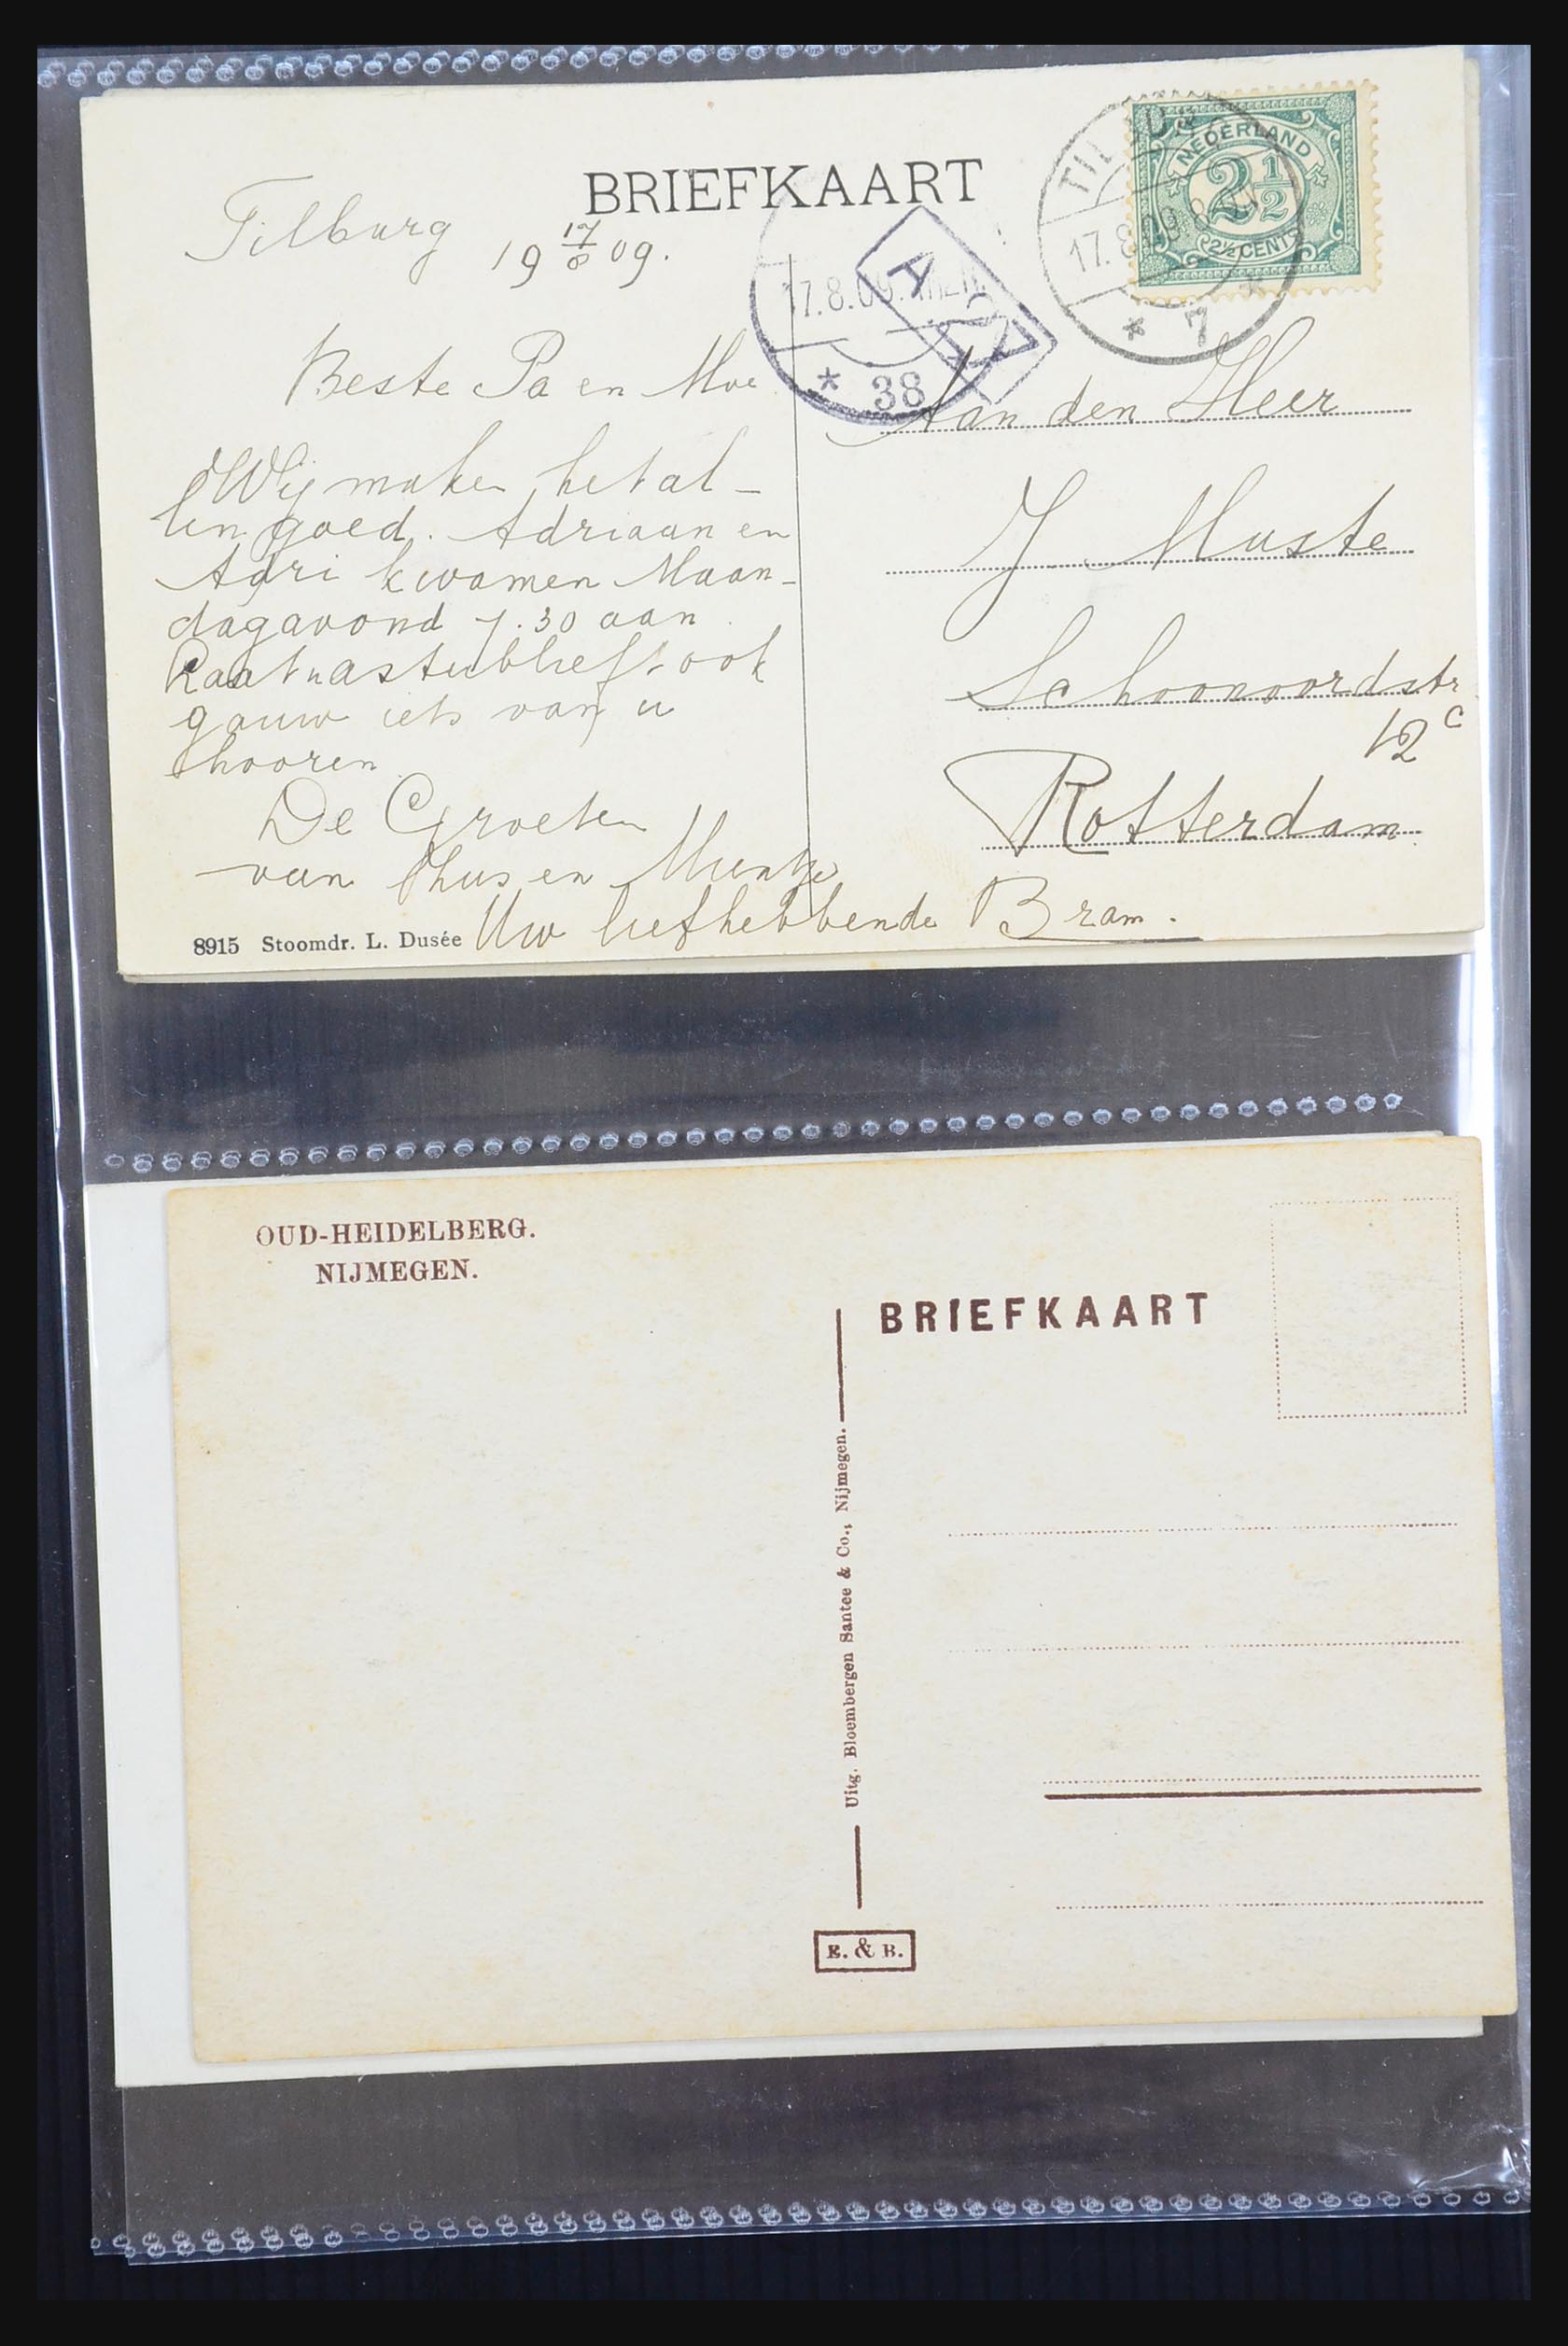 BRIEFKAART
Tilburg 19 17/8 09.
NEDERLAND
2½
2½ CENT
17.8.09
* 7
17.8.09.
* 38
A
Beste Pa en Moe
Wij maken het al-
len goed. Adriaan en
Agri kwamen Maan-
dagavond 7.30 aan.
Laat u astublieft ook
gauw iets van u
hooren
De Groeten
van thus en
Uw liefhebbende Bram.
Aan den Heer
J. Muste
Schoonoordstr
12 c
Rotterdam.
8915 Stoomdr. L. Dusée
OUD-HEIDELBERG.
NIJMEGEN.
BRIEFKAART
Uitg. Bloembergen Santee & Co., Nijmegen.
E. & B.